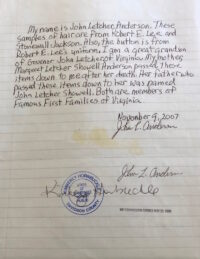 My name is John Letcher Anderson. These
samples of hair are from Robert E. Lee and
Stonewall Jackson. Also, the button is from
Robert E. Lee's uniform. I am a great grandson
of Govenor John Letcher of Virginia. My mother,
Margaret Letcher Showell Anderson passed these
items down to me after her death. Her father who
passed these items down to her was named
John Letcher Showell. Both are members of
Famous First Families of Virginia.
November 9, 2007
John L. Anderson
John L. Anderson